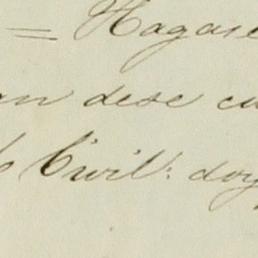 = Hagase
an dese cu
Civil: doy